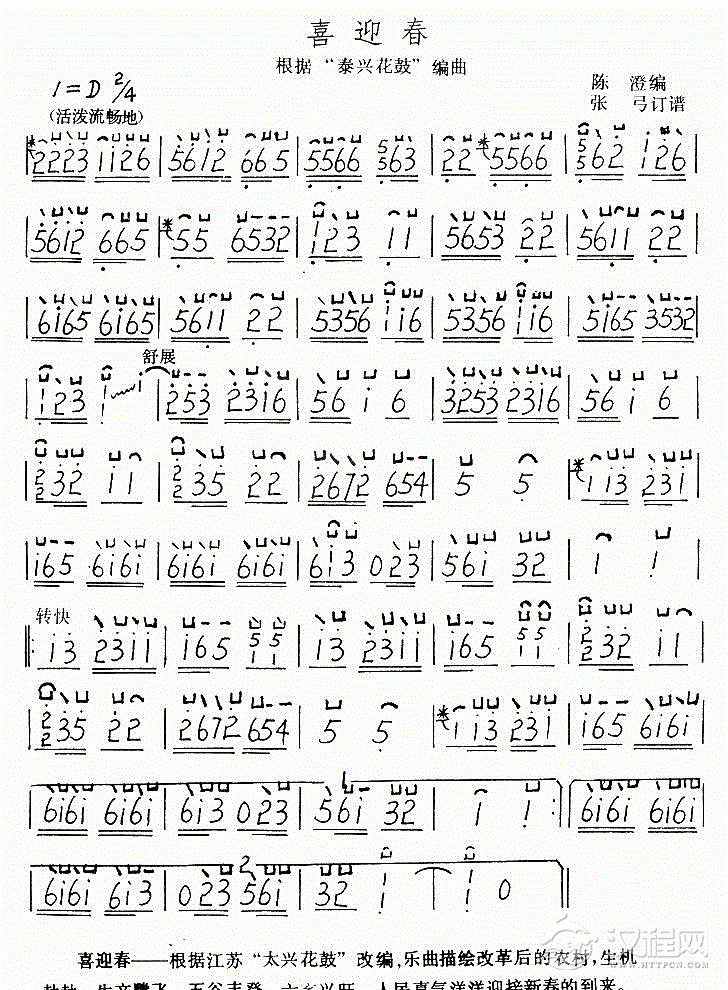 喜迎春
根据“泰兴花鼓”编曲
1=D 2/4
陈 澄编
(活泼流畅地)
张 弓订谱
2223 1126 | 5612 665 | 5566 5563 | 22 5566 | 5562 126
5612 665 | 55 6532 | 123 11 | 5653 22 | 5611 22
6165 6165 | 5611 22 | 5356 116 | 5356 116 | 5165 3532
舒展
123 1 | 253 2316 | 56 1 6 | 3253 2316 | 56 1 6
2232 11 | 2235 22 | 2672 654 | 5 5 | 113 231
165 6161 | 6161 6161 | 613 023 | 561 32 | 1 1
转快
13 2311 | 165 5511 | 13 2311 | 165 5511 | 2232 11
2235 22 | 2672 654 | 5 5 | 113 231 | 165 6161
6161 6161 | 613 023 | 561 32 | 1 1 :| 6161 6161
6161 613 | 023 561 | 32 1 | 1 0
喜迎春——根据江苏“太兴花鼓”改编,乐曲描绘改革后的农村,生机
汉程网
HTTPCN.COM